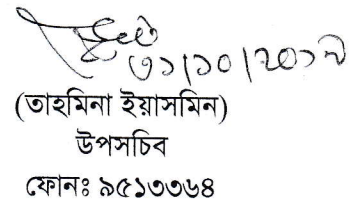 ৩১/১০/২০১৭
(তাহমিনা ইয়াসমিন)
উপসচিব
ফোনঃ ৯৫১৩৩৬৪